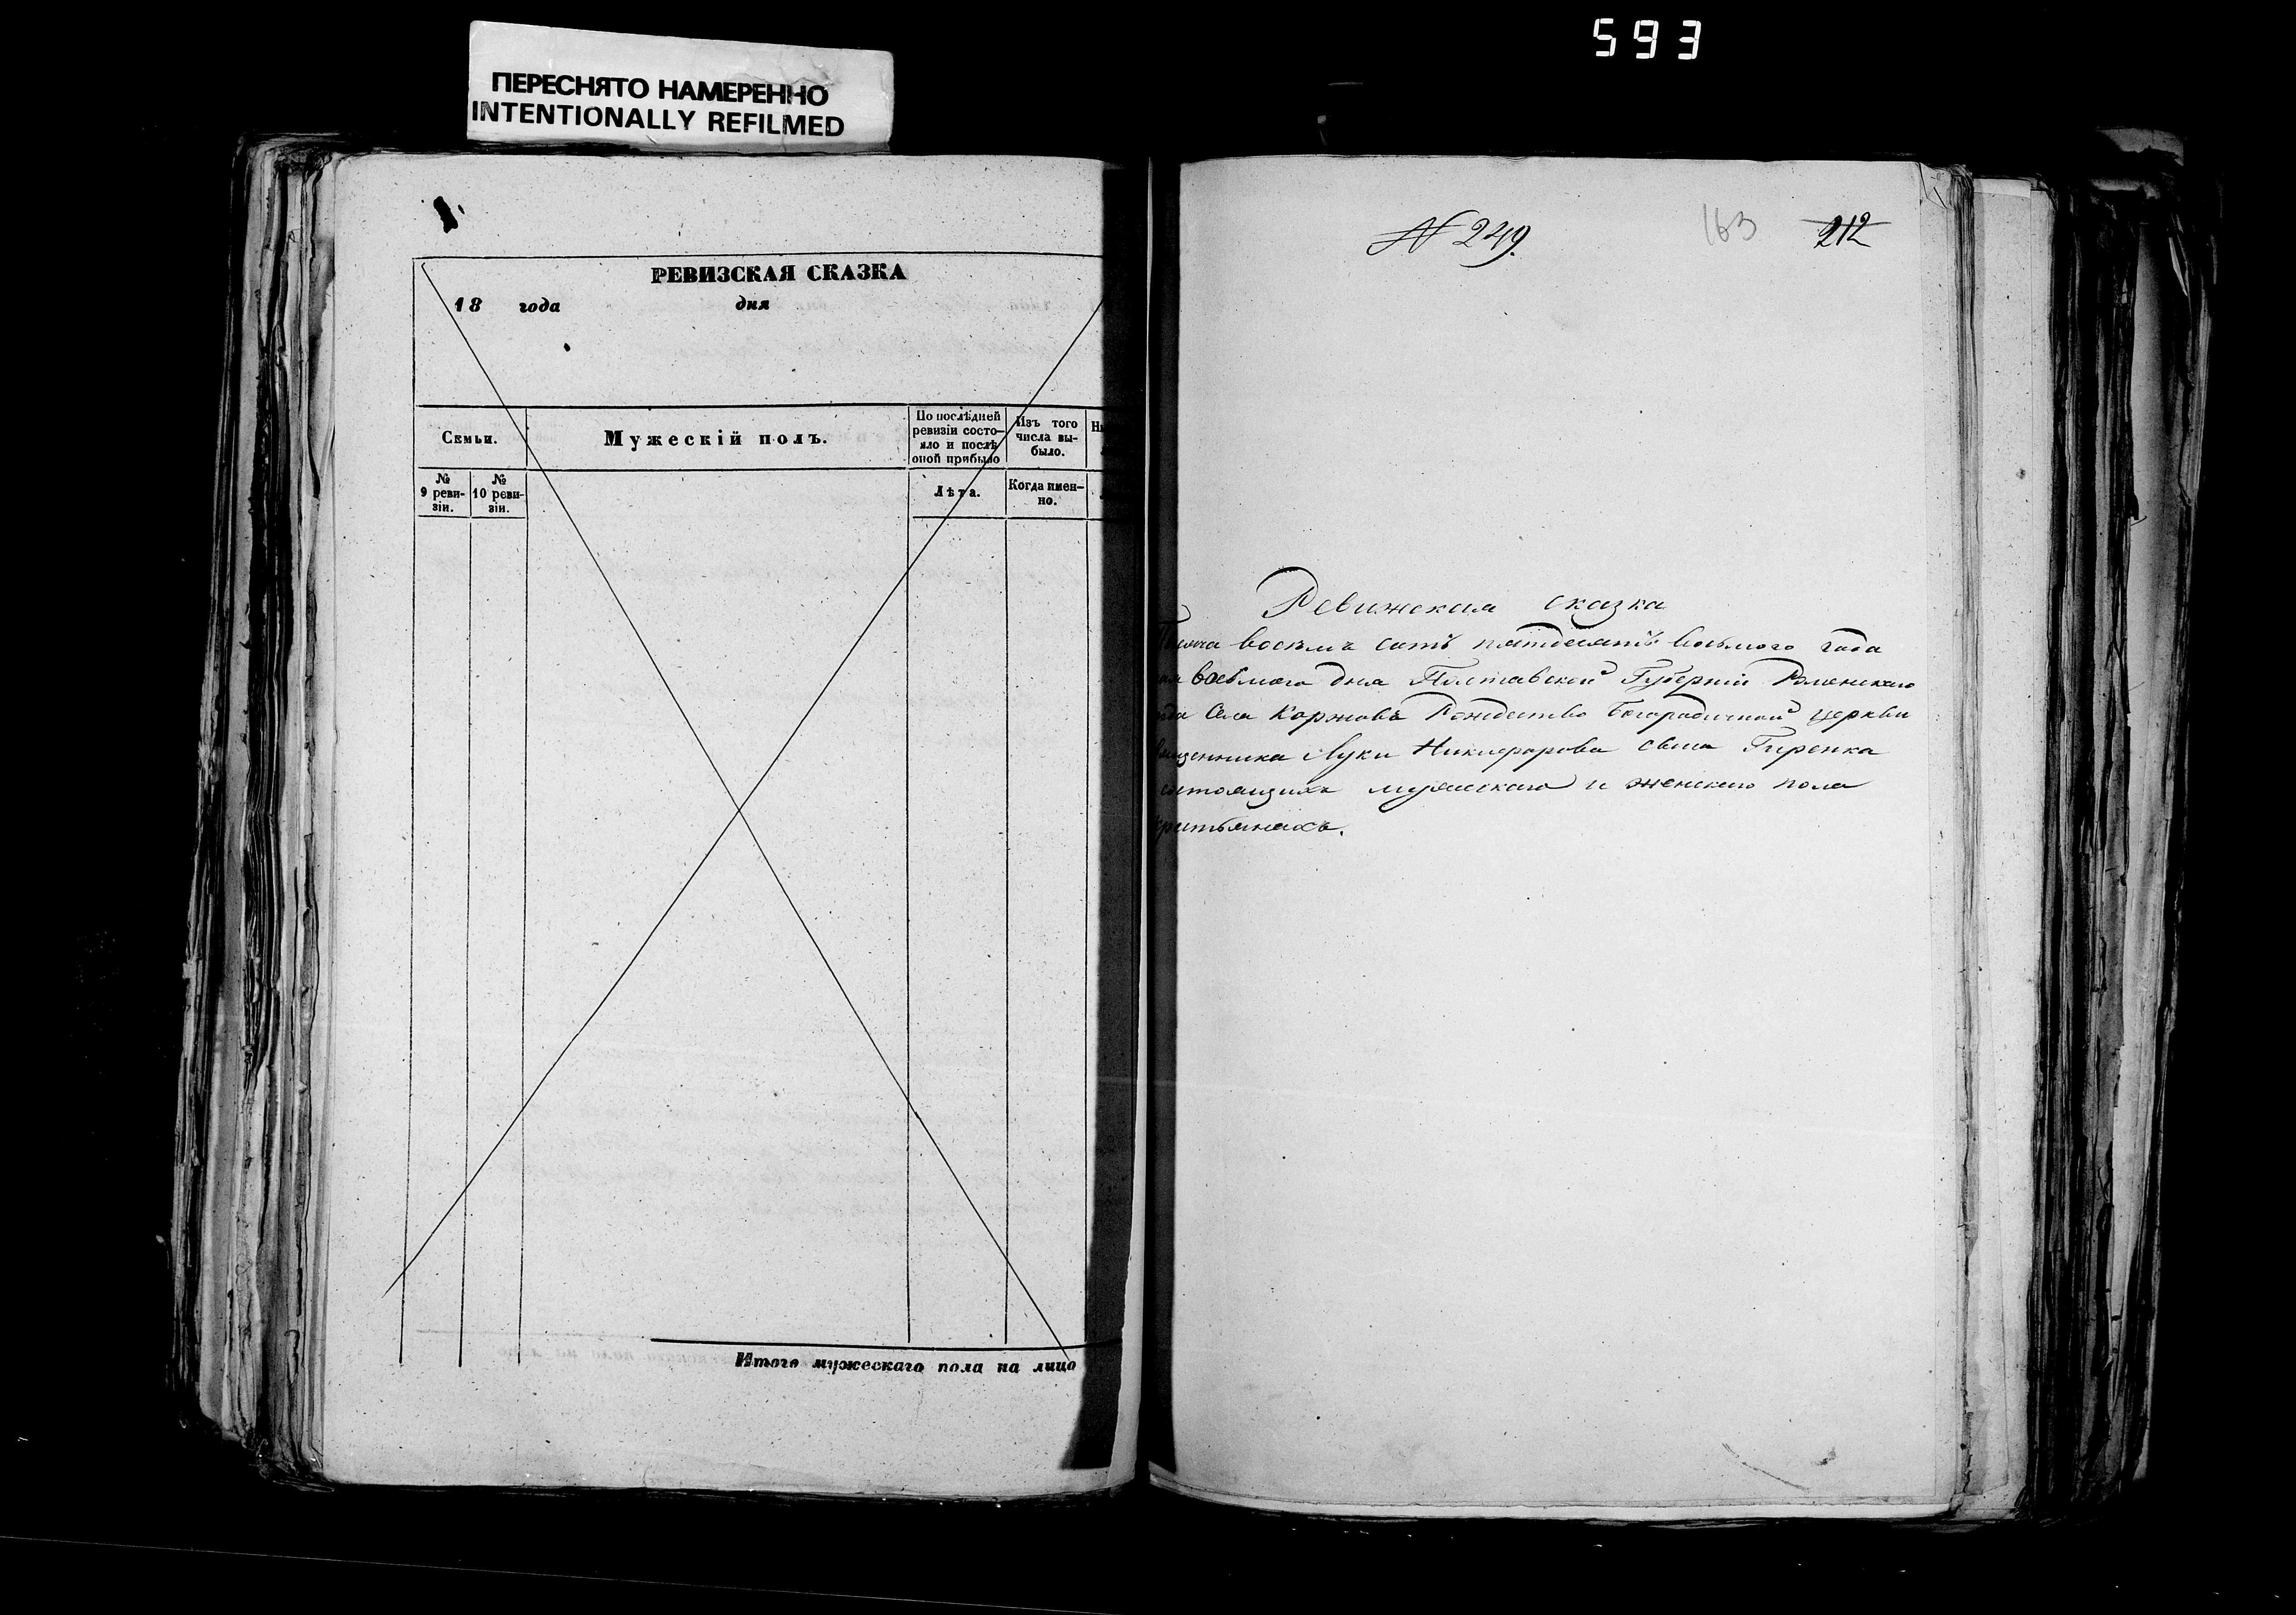 593
ПЕРЕСНЯТО НАМЕРЕННО
INTENTIONALLY REFILMED
РЕВИЗСКАЯ СКАЗКА
18 года дня
Семьи.
Мужескій полъ.
По послѣдней ревизіи состояло и послѣ оной прибыло
Изъ того числа выбыло.
№ 9 ревизіи.
№ 10 ревизіи.
Лѣта.
Когда именно.
Итого мужескаго пола на лицо
N 249.
163
212
Ревижская сказка
восемъ сотъ пятдесятъ восьмого года
восьмого дня Полтавской Губерніи Роменскаго
Села Коржовъ Рождество Богородичной церкви
Луки Никифорова сына Гиренка
мужескаго и женскаго пола